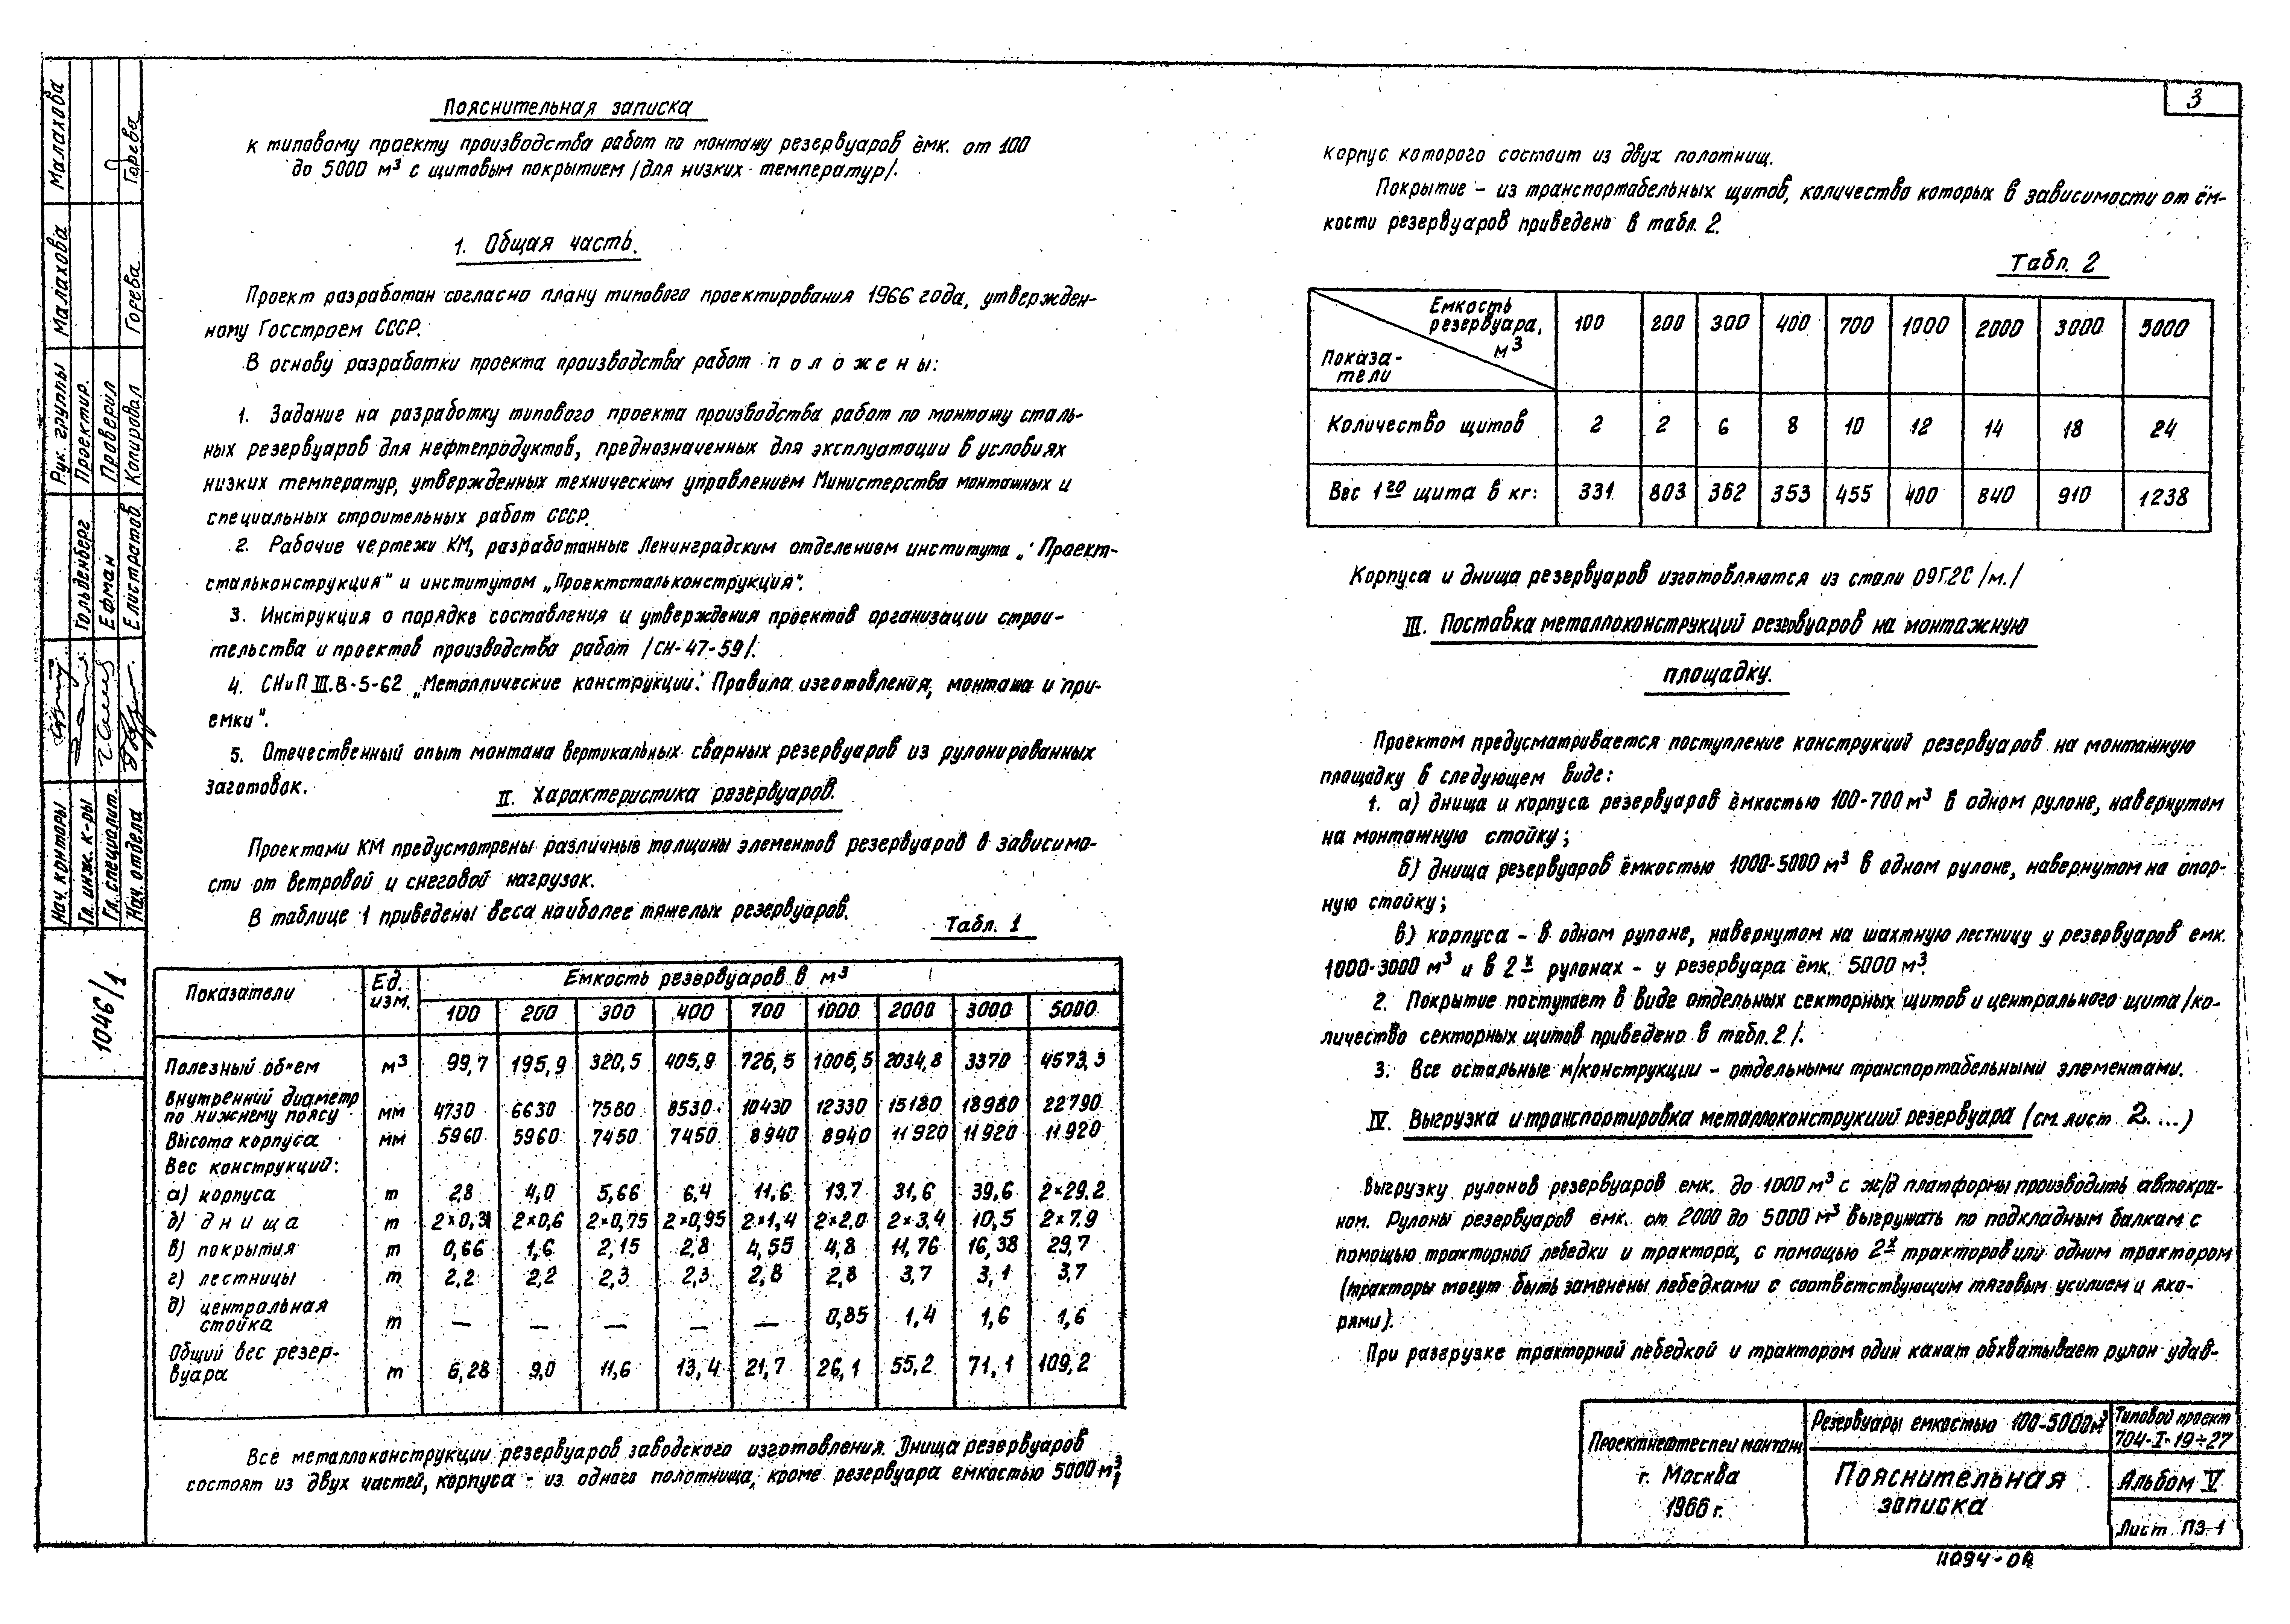 Пояснительная записка
к типовому проекту производства работ по монтажу резервуаров ёмк. от 100
до 5000 м³ с щитовым покрытием /для низких температур/.
1. Общая часть.
Проект разработан согласно плану типового проектирования 1966 года, утвержден-
ному Госстроем СССР.
В основу разработки проекта производства работ п о л о ж е н ы:
1. Задание на разработку типового проекта производства работ по монтажу сталь-
ных резервуаров для нефтепродуктов, предназначенных для эксплуатации в условиях
низких температур, утвержденных техническим управлением Министерства монтажных и
специальных строительных работ СССР.
2. Рабочие чертежи КМ, разработанные Ленинградским отделением института „Проект-
стальконструкция" и институтом „Проектстальконструкция".
3. Инструкция о порядке составления и утверждения проектов организации строи-
тельства и проектов производства работ /СН-47-59/.
4. СНиП III.В-5-62 „Металлические конструкции. Правила изготовления, монтажа и при-
емки".
5. Отечественный опыт монтажа вертикальных сварных резервуаров из рулонированных
заготовок.
II. Характеристика резервуаров.
Проектами КМ предусмотрены различные толщины элементов резервуаров в зависимо-
сти от ветровой и снеговой нагрузок.
В таблице 1 приведены веса наиболее тяжелых резервуаров.
Табл. 1
Показатели Ед. изм. Емкость резервуаров в м³
100 200 300 400 700 1000 2000 3000 5000
Полезный объем м³ 99,7 195,9 320,5 405,9 726,5 1006,5 2034,8 3370 4573,3
Внутренний диаметр
по нижнему поясу мм 4730 6630 7580 8530 10430 12330 15180 18980 22790
Высота корпуса мм 5960 5960 7450 7450 8940 8940 11920 11920 11920
Вес конструкций:
а) корпуса т 2,8 4,0 5,66 6,4 11,6 13,7 31,6 39,6 2×29.2
б) д н и щ а т 2×0,31 2×0,6 2×0,75 2×0,95 2×1,4 2×2,0 2×3,4 10,5 2×7.9
в) покрытия т 0,66 1,6 2,15 2,8 4,55 4,8 11,76 16,38 29,7
г) лестницы т 2,2 2,2 2,3 2,3 2,8 2,8 3,7 3,1 3,7
д) центральная
стойка т — — — — — 0,85 1,4 1,6 1,6
Общий вес резер-
вуара т 6,28 9,0 11,6 13,4 21,7 26,1 55,2 71,1 109,2
Все металлоконструкции резервуаров заводского изготовления. Днища резервуаров
состоят из двух частей, корпуса - из одного полотнища, кроме резервуара емкостью 5000 м³,
3
корпус которого состоит из двух полотнищ.
Покрытие - из транспортабельных щитов, количество которых в зависимости от ём-
кости резервуаров приведено в табл. 2.
Табл. 2
Емкость
резервуара,
м³
Показа-
тели
100 200 300 400 700 1000 2000 3000 5000
Количество щитов 2 2 6 8 10 12 14 18 24
Вес 1го щита в кг: 331 803 362 353 455 400 840 910 1238
Корпуса и днища резервуаров изготовляются из стали 09Г2С /м./
III. Поставка металлоконструкций резервуаров на монтажную
площадку.
Проектом предусматривается поступление конструкций резервуаров на монтажную
площадку в следующем виде:
1. а) днища и корпуса резервуаров ёмкостью 100-700 м³ в одном рулоне, навернутом
на монтажную стойку;
б) днища резервуаров ёмкостью 1000-5000 м³ в одном рулоне, навернутом на опор-
ную стойку;
в) корпуса - в одном рулоне, навернутом на шахтную лестницу у резервуаров емк.
1000-3000 м³ и в 2х рулонах - у резервуара ёмк. 5000 м³.
2. Покрытие поступает в виде отдельных секторных щитов и центрального щита /ко-
личество секторных щитов приведено в табл. 2/.
3. Все остальные м/конструкции - отдельными транспортабельными элементами.
IV. Выгрузка и транспортировка металлоконструкций резервуара (см. лист 2...)
Выгрузку рулонов резервуаров емк. до 1000 м³ с ж/д платформы производить автокра-
ном. Рулоны резервуаров емк. от 2000 до 5000 м³ выгружать по подкладным балкам с
помощью тракторной лебедки и трактора, с помощью 2х тракторов или одним трактором
(тракторы могут быть заменены лебедками с соответствующим тяговым усилием и яко-
рями).
При разгрузке тракторной лебедкой и трактором один канат обхватывает рулон удав-
Проектнефтеспецмонтаж
г. Москва
1966 г.
Резервуары емкостью 100-5000м³
Пояснительная
записка
Типовой проект
704-I-19÷27
Альбом V
Лист ПЗ-1
11094-04
Нач. конторы
Гл. инж. к-ры
Гл. специалист.
Нач. отдела
Гольденберг
Ефман
Елистратов
Рук. группы
Проектир.
Проверил
Копировал
Малахова
Горева
Малахова
Горева
1046/1